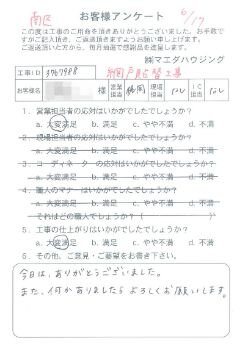 南区
お客様アンケート
6/17
この度は工事のご用命を頂きありがとうございました。お手数で
すがご記入頂き、ご返送頂きますようお願い申し上げます。
ご返送頂いた方から、毎月抽選で感謝品を進呈します。
㈱マエダハウジング
工事ID 3767988 網戸張替工事
お客様名 様 営業担当 現場担当 なし IC担当 なし
1. 営業担当者の応対はいかがでしたでしょうか?
a. 大変満足 b. 満足 c. やや不満 d. 不満
2. 現場担当者の応対はいかがでしたでしょうか?
a. 大変満足 b. 満足 c. やや不満 d. 不満
3. コーディネーターの応対はいかがでしたでしょうか?
a. 大変満足 b. 満足 c. やや不満 d. 不満
4. 職人のマナーはいかがでしたでしょうか?
a. 大変満足 b. 満足 c. やや不満 d. 不満
それはどの職人でしょうか?( )
5. 工事の仕上がりはいかがでしたでしょうか?
a. 大変満足 b. 満足 c. やや不満 d. 不満
6. その他、ご意見・ご要望をお書き下さい。
今日は、ありがとうございました。
また、何かありましたら よろしくお願いします。